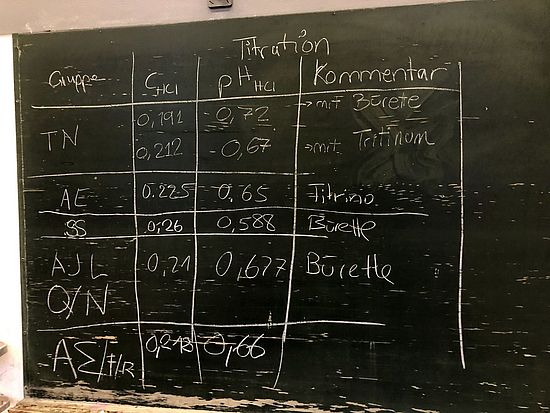 Titration
Gruppe C HCl pH HCl Kommentar
TN 0,191 0,72 → mit Bürete
0,212 0,67 → mit Tritinom
AE 0.225 0,65 Titrino
SS 0,26 0,588 Bürette
AJL 0,21 0,677 Bürette
Q/N
0,218 0,66